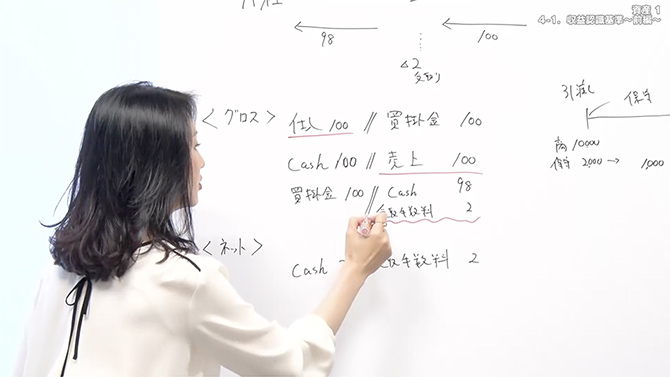 資産 1
4-1. 収益認識基準～前編～
98
100
△2
受取り
<グロス>
仕入 100 // 買掛金 100
Cash 100 // 売上 100
買掛金 100 // Cash 98
受取手数料 2
<ネット>
Cash 手数料 2
引渡し
保守
商 10,000
保守 2,000 → 1,000